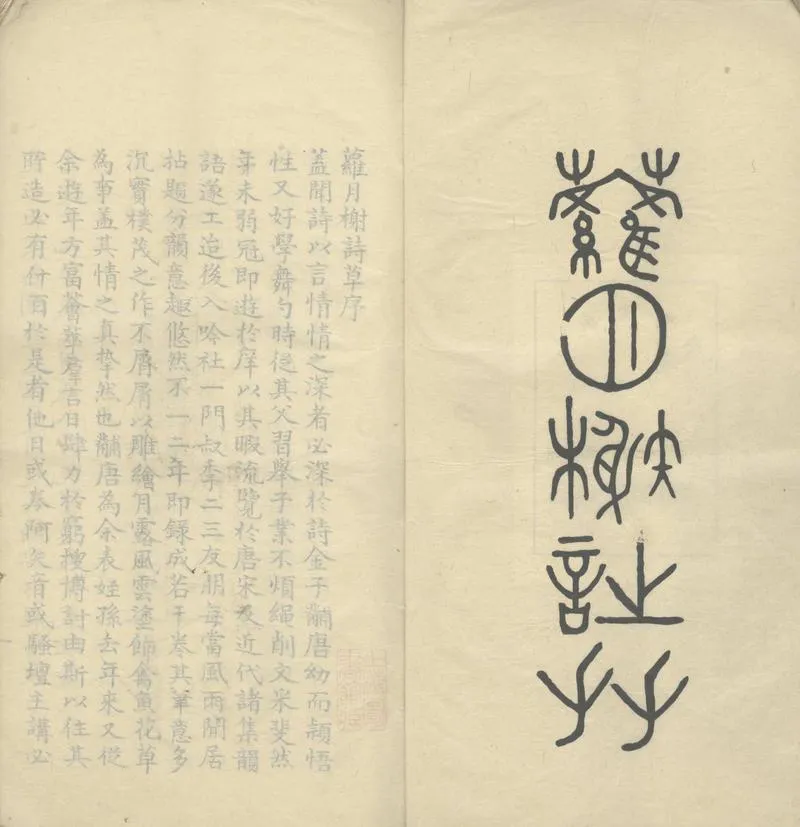 蘿月榭詩艸
蘿月榭詩草序
蓋聞詩以言情情之深者必深於詩金子黼唐幼而穎悟
性又好學舞勺時從其父習舉子業不煩繩削文采斐然
年未弱冠即遊於庠以其暇流覽於唐宋及近代諸集韻
語遂工迨後入唫社一門叔季二三友朋每當風雨閒居
拈題分韻意趣悠然不一二年即録成若干卷其筆意多
沉實樸茂之作不屑屑以雕繪月露風雲塗飾禽魚花草
為事蓋其情之真摯然也黼唐為余表姪孫去年來又從
余遊年方富薈萃羣言日肆力於窮搜博討由斯以往其
所造必有什百於是者他日或卷阿矢音或騷壇主講必